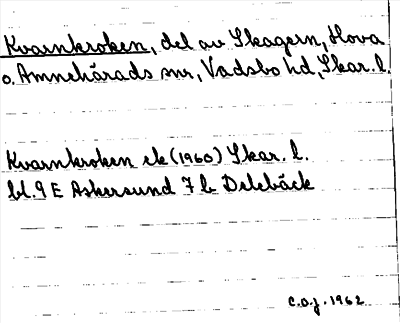 Kvarnkroken, del av Skagern, Hova
o. Amnehärads snr, Vadsbo hd, Skar. l.
Kvarnkroken ek (1960) Skar. l.
bl. 9 E Askersund 7 b Delebäck
C.O.J. 1962